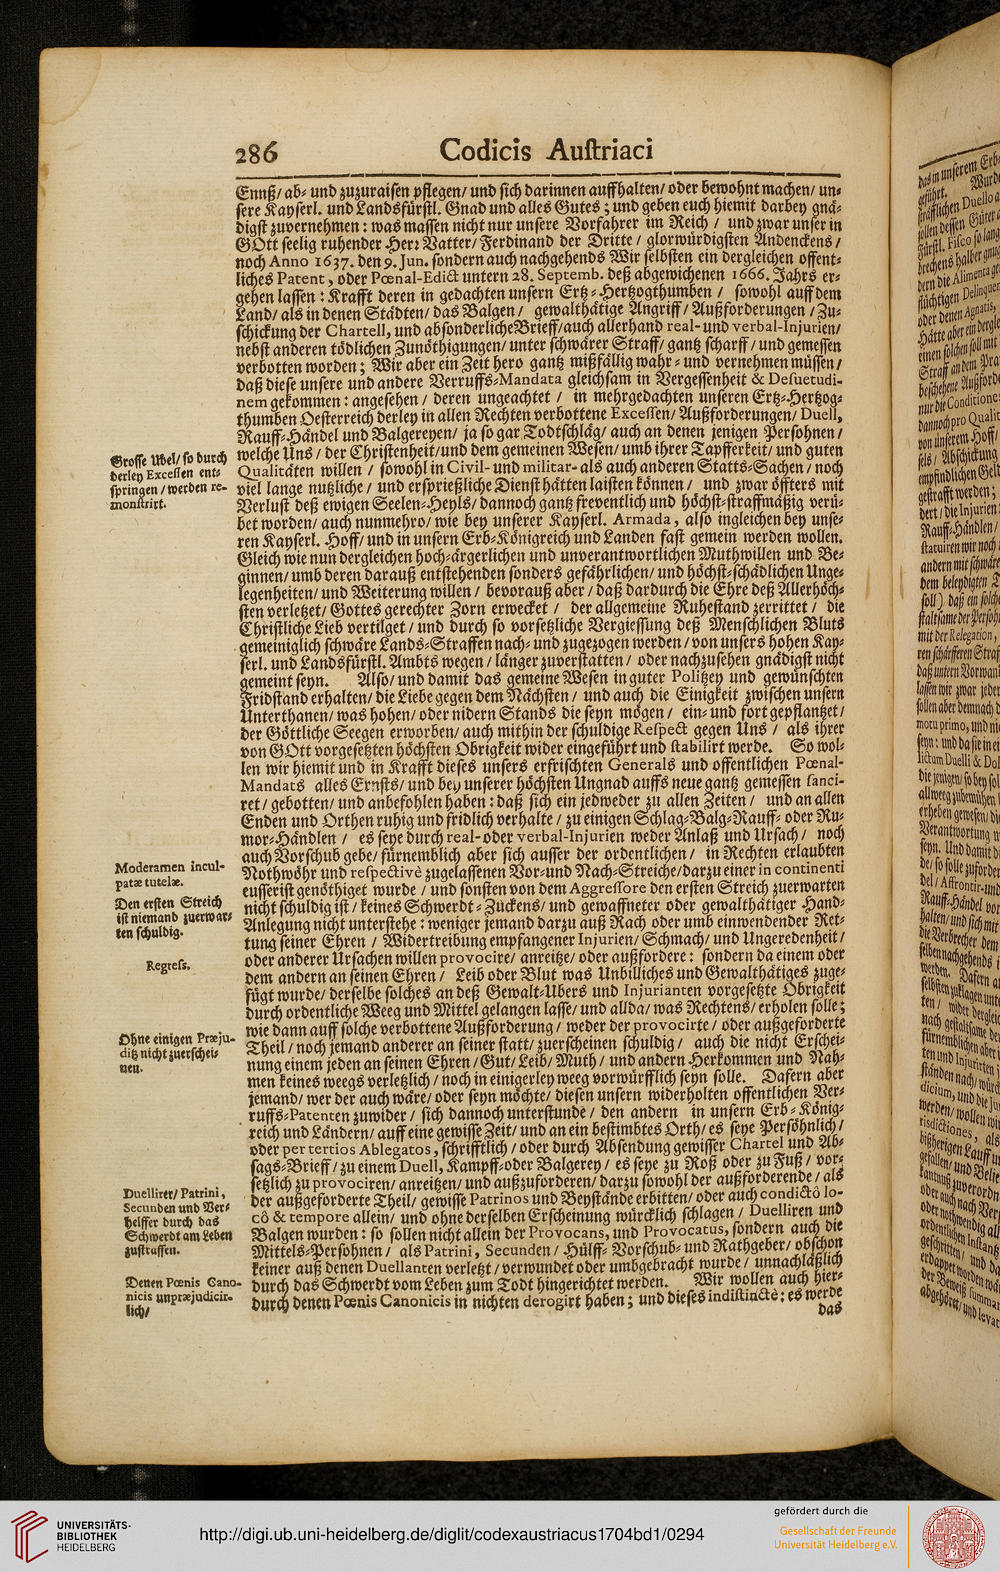 286 Codicis Austriaci
Ennß/ ab- und zuzuraisen pflegen/ und sich darinnen auffhalten/ oder bewohnt machen/ un-
sere Kayserl. und Landsfürstl. Gnad und alles Gutes; und geben euch hiemit darbey gnä-
digst zuvernehmen: was massen nicht nur unsere Vorfahrer im Reich / und zwar unser in
GOtt seelig ruhender Herr Vatter/ Ferdinand der Dritte / glorwürdigsten Andenckens /
noch Anno 1637. den 9. Jun. sondern auch nachgehends Wir selbsten ein dergleichen offent-
liches Patent, oder Pœnal-Edict untern 28. Septemb. deß abgewichenen 1666. Jahrs er-
gehen lassen: Krafft deren in gedachten unsern Ertz-Hertzogthumben / sowohl auff dem
Land/ als in denen Städten/ das Balgen / gewalthätige Angriff/ Außforderungen / Zu-
schickung der Chartell, und absonderliche Brieff/ auch allerhand real- und verbal-Injurien/
nebst anderen tödlichen Zunöthigungen/ unter schwärer Straff/ gantz scharff / und gemessen
verbotten worden; Wir aber ein Zeit hero gantz mißfällig wahr- und vernehmen müssen /
daß diese unsere und andere Verruffs-Mandata gleichsam in Vergessenheit & Desuetudi-
nem gekommen: angesehen / deren ungeachtet / in mehrgedachten unseren Ertz-Hertzog-
thumben Oesterreich derley in allen Rechten verbottene Excessen/ Außforderungen/ Duell,
Rauff-Händel und Balgereyen/ ja so gar Todtschläg/ auch an denen jenigen Persohnen /
Grosse Ubel/ so durch
derley Excessen ent-
springen / werden re-
monstrirt.
welche Uns / der Christenheit/ und dem gemeinen Wesen/ umb ihrer Tapfferkeit/ und guten
Qualitäten willen / sowohl in Civil- und militar- als auch anderen Statts-Sachen / noch
viel lange nutzliche / und ersprießliche Dienst hätten laisten können / und zwar öffters mit
Verlust deß ewigen Seelen-Heyls/ dannoch gantz freventlich und höchst-straffmäßig verü-
bet worden/ auch nunmehro/ wie bey unserer Kayserl. Armada, also ingleichen bey unse-
ren Kayserl. Hoff/ und in unsern Erb-Königreich und Landen fast gemein werden wollen.
Gleich wie nun dergleichen hoch-ärgerlichen und unverantwortlichen Muthwillen und Be-
ginnen/ umb deren darauß entstehenden sonders gefährlichen/ und höchst-schädlichen Unge-
legenheiten/ und Weiterung willen / bevorauß aber / daß dardurch die Ehre deß Allerhöch-
sten verletzet/ Gottes gerechter Zorn erwecket / der allgemeine Ruhestand zerrittet / die
Christliche Lieb vertilget / und durch so vorsetzliche Vergiessung deß Menschlichen Bluts
gemeiniglich schwäre Lands-Straffen nach- und zugezogen werden / von unsers hohen Kay-
serl. und Landsfürstl. Ambts wegen / länger zuverstatten / oder nachzusehen gnädigst nicht
gemeint seyn. Also/ und damit das gemeine Wesen in guter Politzey und gewünschten
Fridstand erhalten/ die Liebe gegen dem Nächsten / und auch die Einigkeit zwischen unsern
Unterthanen/ was hohen/ oder nidern Stands die seyn mögen / ein- und fort gepflantzet/
der Göttliche Seegen erworben/ auch mithin der schuldige Respect gegen Uns / als ihrer
von GOtt vorgesetzten höchsten Obrigkeit wider eingeführt und stabilirt werde. So wol-
len wir hiemit und in Krafft dieses unsers erfrischten Generals und offentlichen Pœnal-
Mandats alles Ernsts/ und bey unserer höchsten Ungnad auffs neue gantz gemessen sanci-
ret / gebotten/ und anbefohlen haben: daß sich ein jedweder zu allen Zeiten / und an allen
Enden und Orthen ruhig und fridlich verhalte / zu einigen Schlag-Balg-Rauff- oder Ru-
mor-Händlen / es seye durch real- oder verbal-Injurien weder Anlaß und Ursach / noch
auch Vorschub gebe/ fürnemblich aber sich ausser der ordentlichen / in Rechten erlaubten
Moderamen incul-
patæ tutelæ.
Nothwöhr und respectivè zugelassenen Vor- und Nach-Streiche/ darzu einer in continenti
eusserist genöthiget wurde / und sonsten von dem Aggressore den ersten Streich zuerwarten
Den ersten Streich
ist niemand zuerwar-
ten schuldig.
nicht schuldig ist / keines Schwerdt-Zuckens/ und gewaffneter oder gewalthätiger Hand-
Anlegung nicht unterstehe: weniger jemand darzu auß Rach oder umb einwendender Ret-
tung seiner Ehren / Widertreibung empfangener Injurien/ Schmach/ und Ungeredenheit/
oder anderer Ursachen willen provocire/ anreitze/ oder außfordere: sondern da einem oder
Regress.
dem andern an seinen Ehren / Leib oder Blut was Unbilliches und Gewalthätiges zuge-
fügt wurde/ derselbe solches an deß Gewalt-Ubers und Injurianten vorgesetzte Obrigkeit
durch ordentliche Weeg und Mittel gelangen lasse/ und allda/ was Rechtens/ erholen solle;
wie dann auff solche verbottene Außforderung / weder der provocirte / oder außgeforderte
Ohne einigen Præju-
ditz nicht zuerschei-
nen.
Theil / noch jemand anderer an seiner statt/ zuerscheinen schuldig / auch die nicht Erschei-
nung einem jeden an seinen Ehren / Gut/ Leib/ Muth / und andern Herkommen und Nah-
men keines weegs verletzlich / noch in einigerley weeg vorwürfflich seyn solle. Dafern aber
jemand/ wer der auch wäre/ oder seyn möchte/ diesen unsern widerholten offentlichen Ver-
ruffs-Patenten zuwider / sich dannoch unterstunde / den andern in unsern Erb-König-
reich und Ländern/ auff eine gewisse Zeit/ und an ein bestimbtes Orth/ es seye Persöhnlich /
oder per tertios Ablegatos, schrifftlich / oder durch Absendung gewisser Chartel und Ab-
sags-Brieff / zu einem Duell, Kampff- oder Balgerey / es seye zu Roß oder zu Fuß / vor-
setzlich zu provociren/ anreitzen/ und außzuforderen/ darzu sowohl der außforderende / als
Duellirer/ Patrini,
Secunden und Ver-
helffer durch das
Schwerdt am Leben
zustraffen.
der außgeforderte Theil/ gewisse Patrinos und Beystände erbitten/ oder auch condictô lo-
cô & tempore allein/ und ohne derselben Erscheinung würcklich schlagen / Duelliren und
Balgen wurden: so sollen nicht allein der Provocans, und Provocatus, sondern auch die
Mittels-Persohnen / als Patrini, Secunden / Hülff-Vorschub- und Rathgeber/ obschon
keiner auß denen Duellanten verletzt / verwundet oder umbgebracht wurde / unnachläßlich
Denen Pœnis Cano-
nicis unpræjudicir-
lich/
durch das Schwerdt vom Leben zum Todt hingerichtet werden. Wir wollen auch hier-
durch denen Pœnis Canonicis in nichten derogirt haben; und dieses indistinctè: es werde
das
UNIVERSITÄTS-
BIBLIOTHEK
HEIDELBERG
http://digi.ub.uni-heidelberg.de/diglit/codexaustriacus1704bd1/0294
gefördert durch die
Gesellschaft der Freunde
Universität Heidelberg e.V.